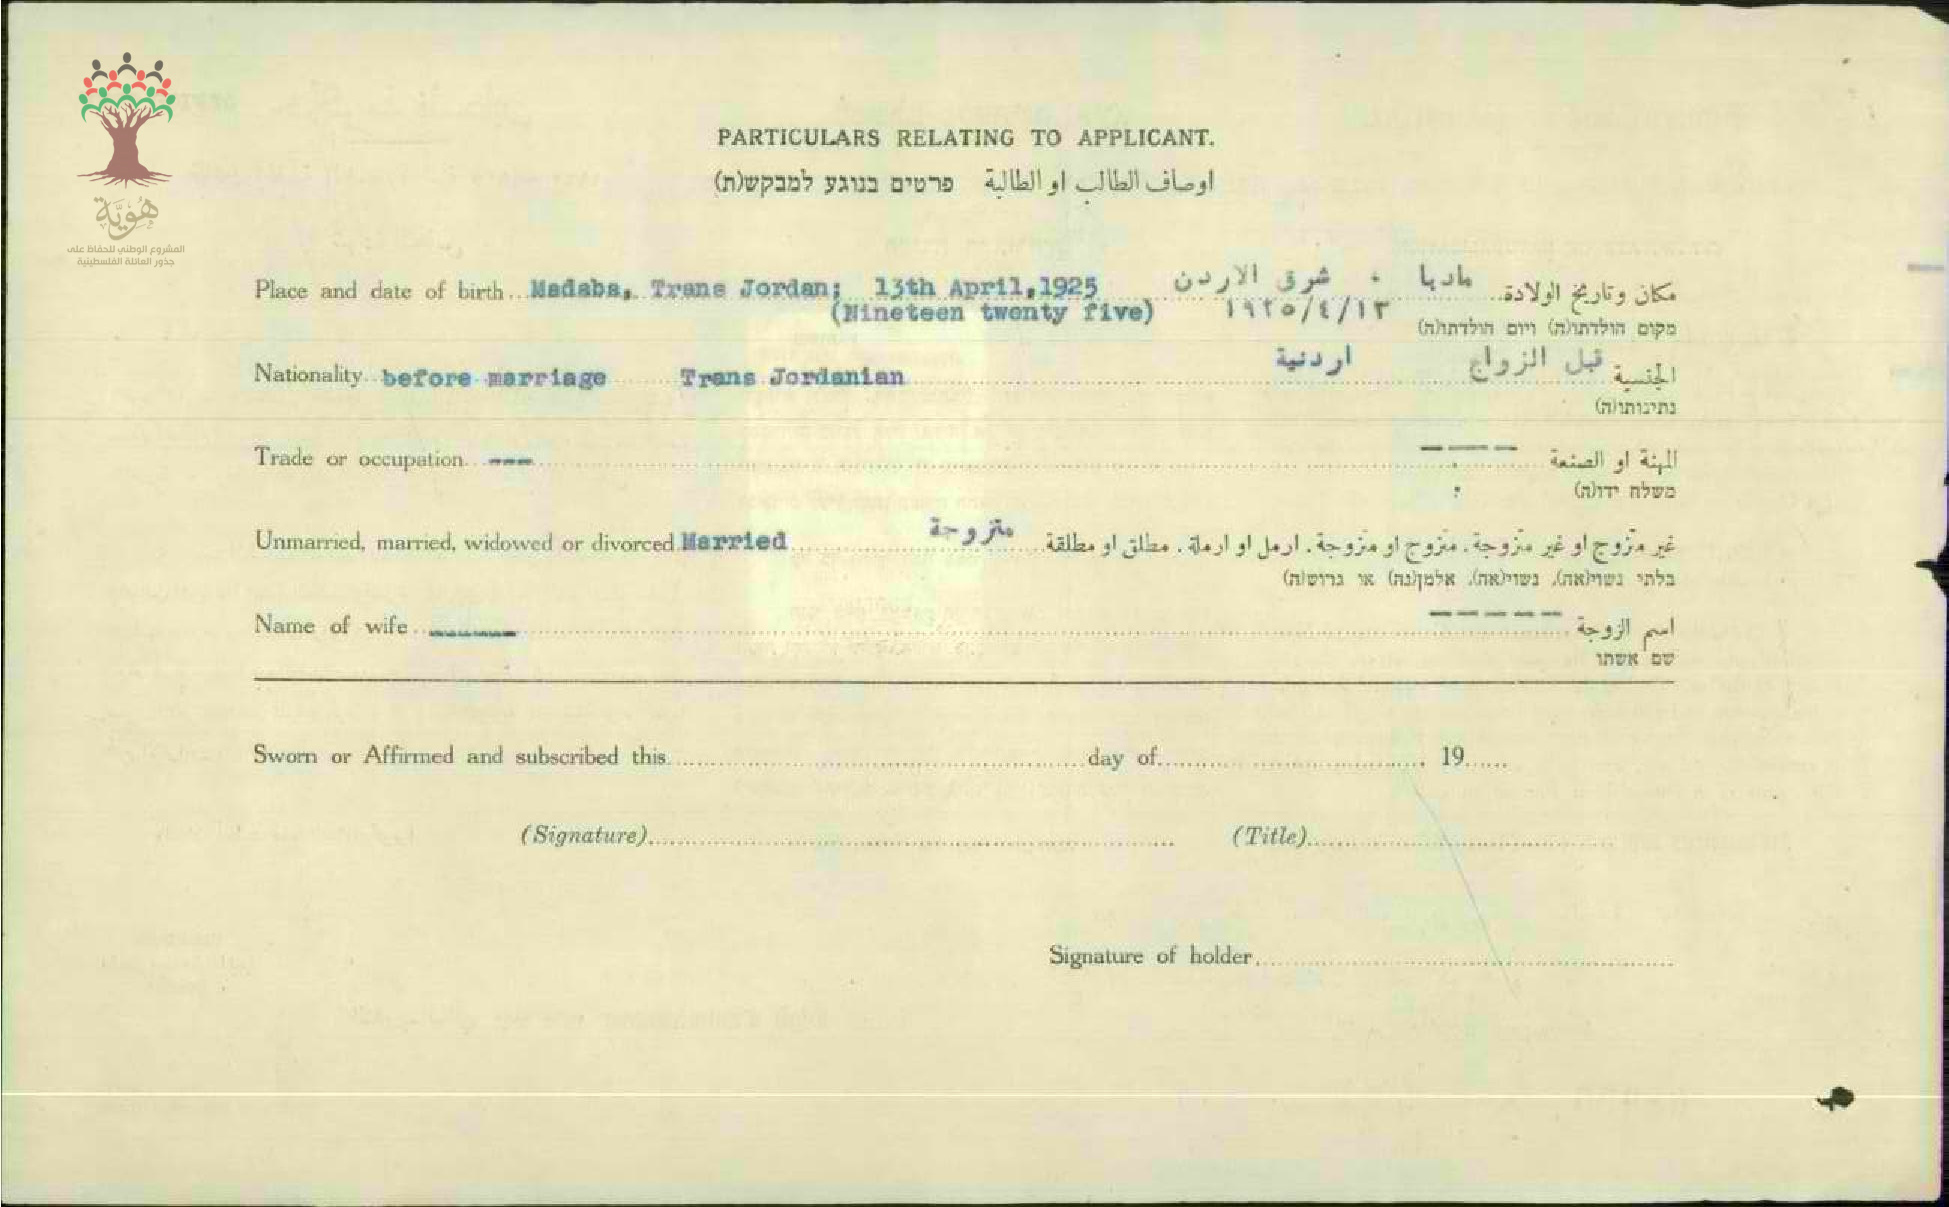 هُوِيَّة
المشروع الوطني للحفاظ على
جذور العائلة الفلسطينية
PARTICULARS RELATING TO APPLICANT.
اوصاف الطالب او الطالبة פרטים בנוגע למבקש(ת)
Place and date of birth Madaba, Trans Jordan; 13th April,1925 مادبا ، شرق الاردن مكان وتاريخ الولادة
(Nineteen twenty five) ١٩٢٥/٤/١٣
מקום הולדתו(ה) ויום הולדתו(ה)
Nationality before marriage Trans Jordanian اردنية قبل الزواج الجنسية
נתינותו(ה)
Trade or occupation --- ---- المهنة او الصنعة
משלח ידו(ה)
Unmarried, married, widowed or divorced Married متزوجة غير متزوج او غير متزوجة. متزوج او متزوجة. ارمل او ارملة. مطلق او مطلقة
בלתי נשוי(אה), נשוי(אה), אלמן(נה) או גרוש(ה)
Name of wife ------ ----- اسم الزوجة
שם אשתו
Sworn or Affirmed and subscribed this day of 19
(Signature) (Title)
Signature of holder